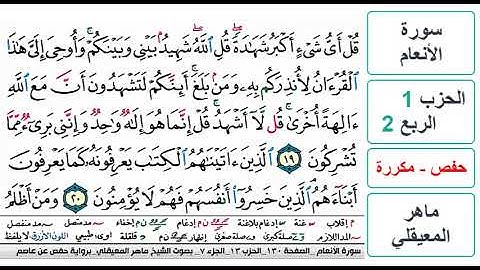 قُلْ أَىُّ شَىْءٍ أَكْبَرُ شَهَٰدَةً قُلِ ٱللَّهُ شَهِيدٌۢ بَيْنِى وَبَيْنَكُمْ وَأُوحِىَ إِلَىَّ هَٰذَا
ٱلْقُرْءَانُ لِأُنذِرَكُم بِهِۦ وَمَنۢ بَلَغَ أَئِنَّكُمْ لَتَشْهَدُونَ أَنَّ مَعَ ٱللَّهِ
ءَالِهَةً أُخْرَىٰ قُل لَّآ أَشْهَدُ قُلْ إِنَّمَا هُوَ إِلَٰهٌ وَٰحِدٌ وَإِنَّنِى بَرِىٓءٌ مِّمَّا
تُشْرِكُونَ ١٩ ٱلَّذِينَ ءَاتَيْنَٰهُمُ ٱلْكِتَٰبَ يَعْرِفُونَهُۥ كَمَا يَعْرِفُونَ
أَبْنَآءَهُمُ ٱلَّذِينَ خَسِرُوٓا۟ أَنفُسَهُمْ فَهُمْ لَا يُؤْمِنُونَ ٢٠ وَمَنْ أَظْلَمُ
سورة الأنعام _ الصفحة ١٣٠ _ الحزب ١٣ _ الجزء ٧ _ بصوت الشيخ ماهر المعيقلي _ برواية حفص عن عاصم
سورة
الأنعام
الحزب 1
الربع 2
حفص - مكررة
ماهر
المعيقلي